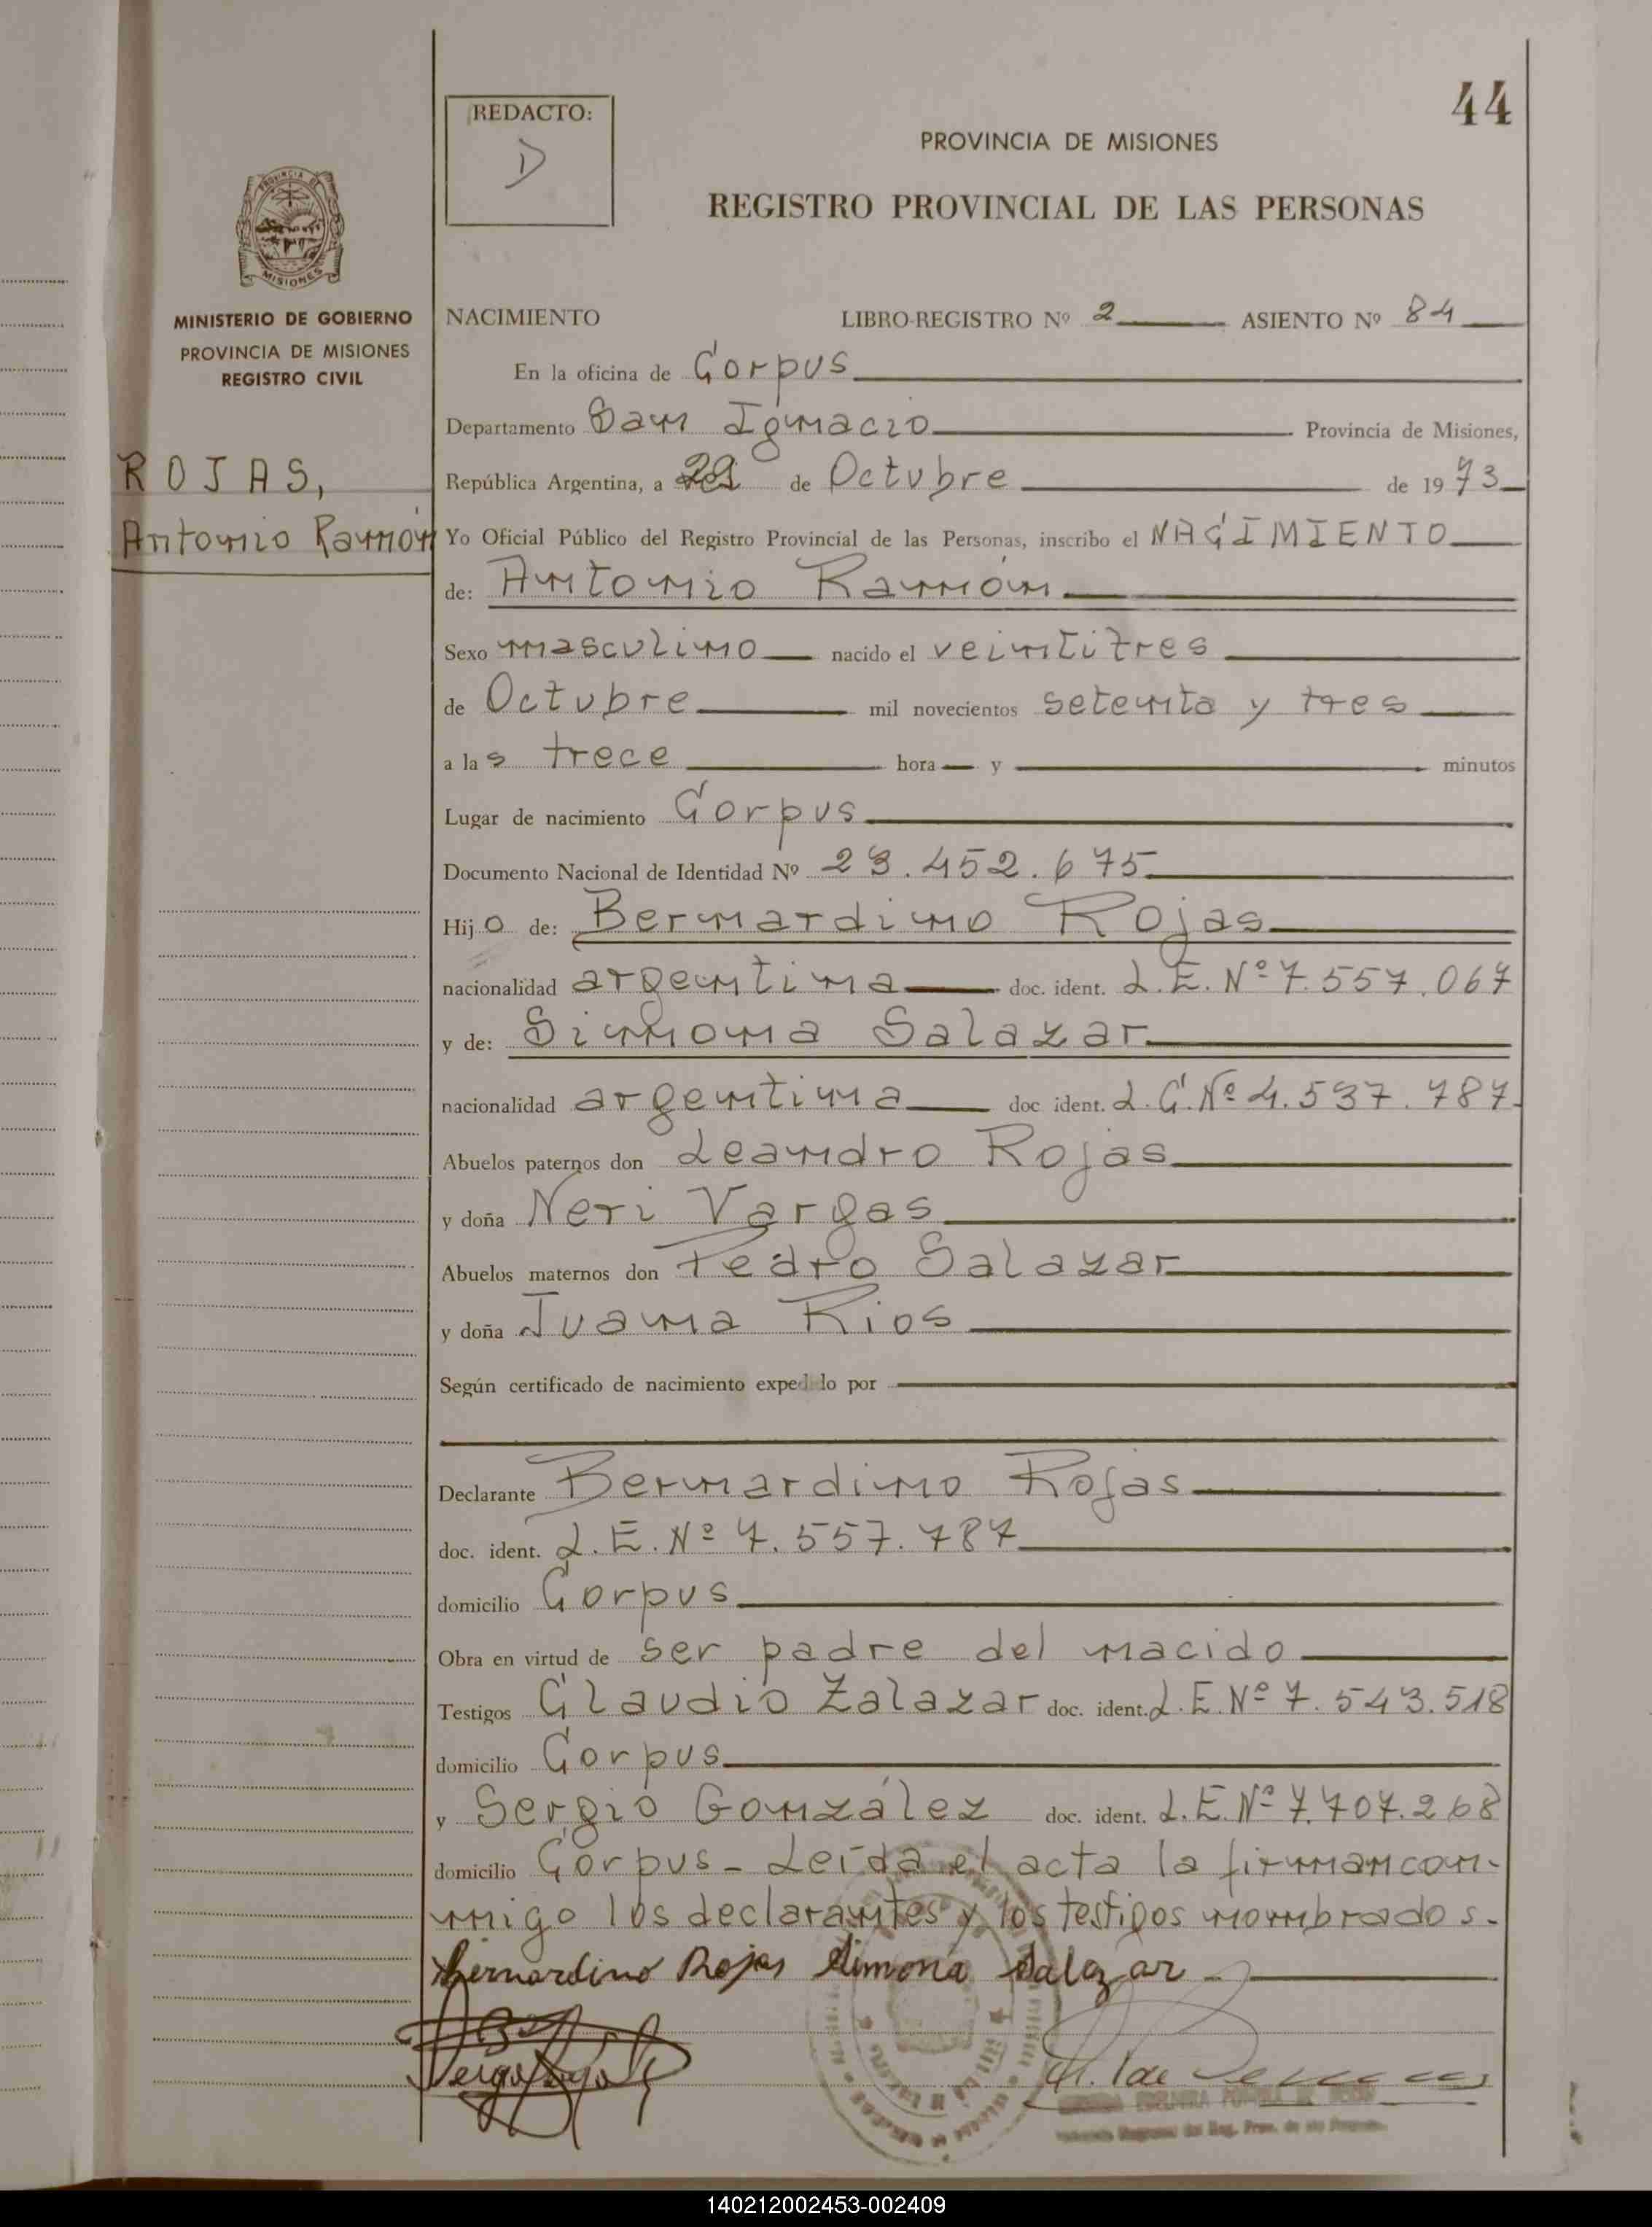 44
REDACTO:
D
PROVINCIA DE MISIONES
REGISTRO PROVINCIAL DE LAS PERSONAS
PROVINCIA DE
MISIONES
MINISTERIO DE GOBIERNO
PROVINCIA DE MISIONES
REGISTRO CIVIL
ROJAS,
Antonio Ramón
NACIMIENTO LIBRO-REGISTRO Nº 2 ASIENTO Nº 84
En la oficina de Corpus
Departamento San Ignacio Provincia de Misiones,
República Argentina, a 29 de Octubre de 1973
Yo Oficial Público del Registro Provincial de las Personas, inscribo el NACIMIENTO
de: Antonio Ramón
Sexo masculino nacido el veintitres
de Octubre mil novecientos setenta y tres
a las trece hora y minutos
Lugar de nacimiento Corpus
Documento Nacional de Identidad Nº 23.452.675
Hijo de: Bernardino Rojas
nacionalidad argentina doc. ident. L.E. Nº 7.557.067
y de: Simona Salazar
nacionalidad argentina doc ident. L.C. Nº 4.537.787
Abuelos paternos don Leandro Rojas
y doña Neri Vargas
Abuelos maternos don Pedro Salazar
y doña Juana Rios
Según certificado de nacimiento expedido por
Declarante Bernardino Rojas
doc. ident. L.E. Nº 7.557.787
domicilio Corpus
Obra en virtud de ser padre del nacido
Testigos Claudio Zalazar doc. ident. L.E. Nº 7.543.518
domicilio Corpus
y Sergio González doc. ident. L.E. Nº 7.707.268
domicilio Corpus- Leída el acta la firman con-
migo los declarantes y los testigos nombrados.-
Bernardino Rojas Simona Salazar
140212002453-002409